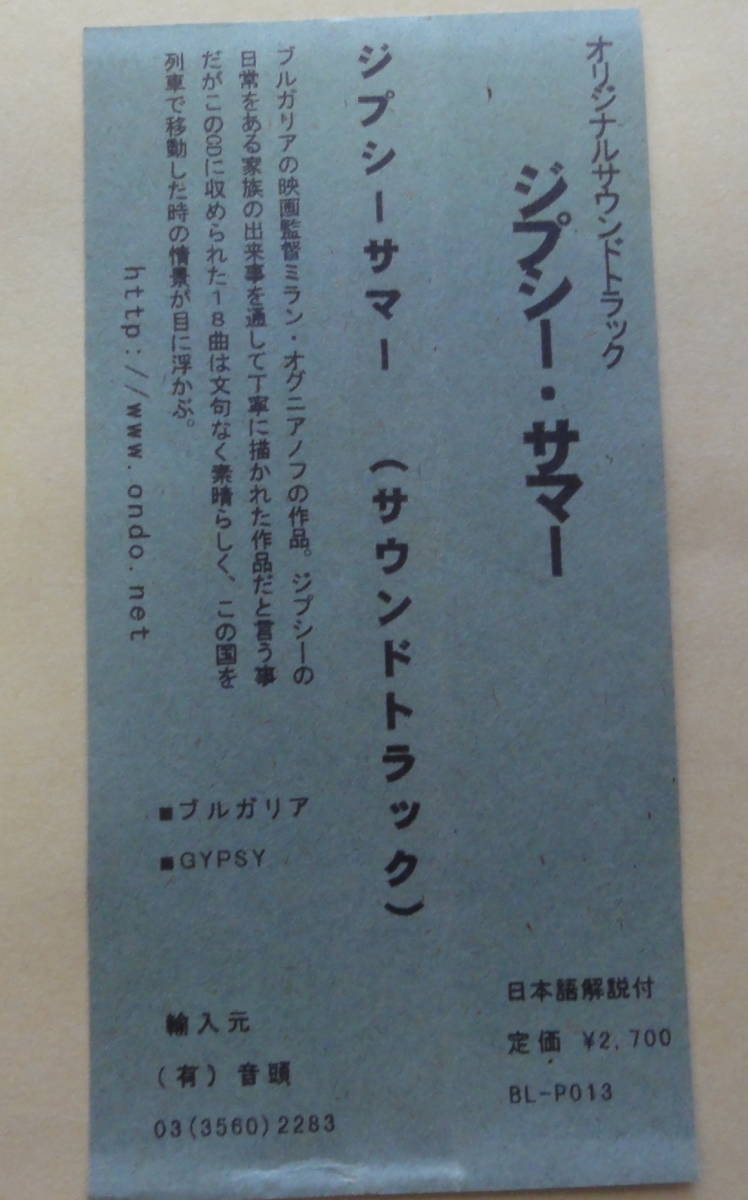 オリジナルサウンドトラック
ジプシー・サマー
ジプシーサマー （サウンドトラック）
ブルガリアの映画監督ミラン・オグニアノフの作品。ジプシーの
日常をある家族の出来事を通して丁寧に描かれた作品だと言う事
だがこのCDに収められた18曲は文句なく素晴らしく、この国を
列車で移動した時の情景が目に浮かぶ。
http://www.ondo.net
■ブルガリア
■GYPSY
日本語解説付
定価 ¥2,700
BL-P013
輸入元
(有) 音頭
03(3560)2283